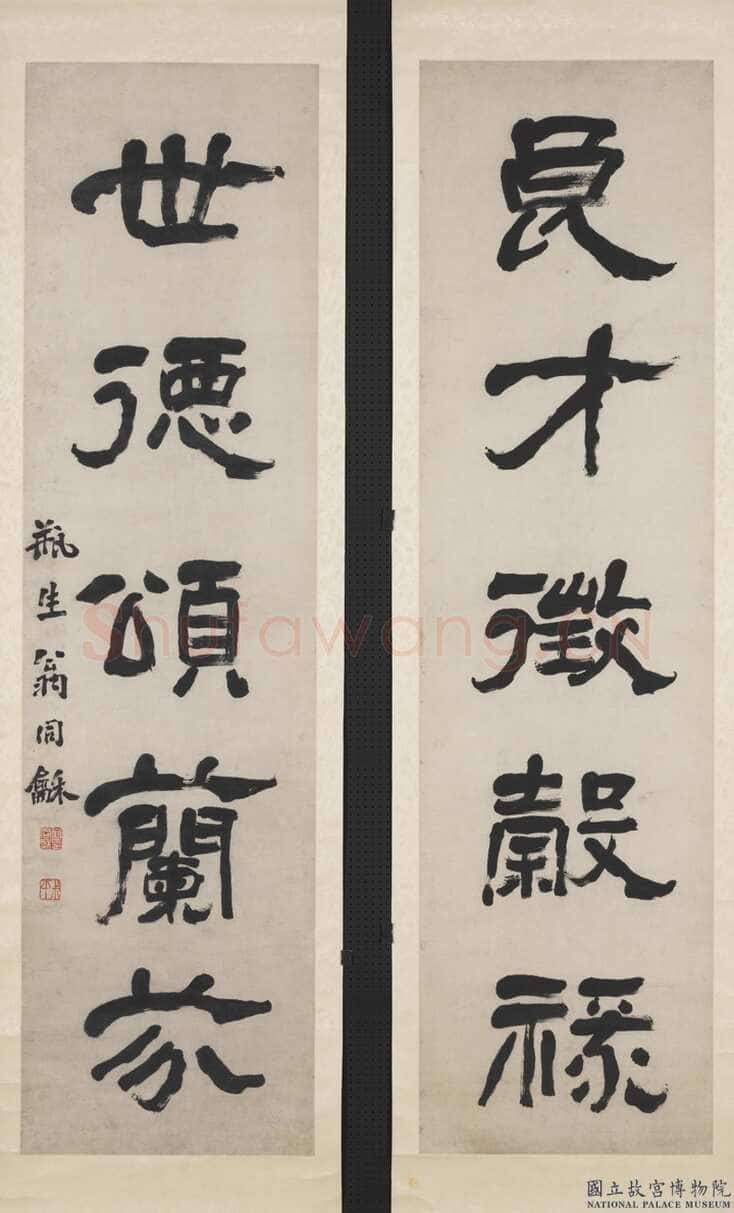 良才徵穀祿
世德頌蘭芬
瓶生翁同龢
Shufawang.CN
國立故宮博物院
NATIONAL PALACE MUSEUM